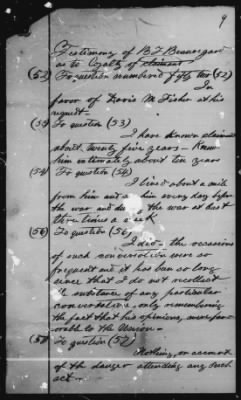 9
Testimony of B F Beauregard
as to Loyalty of claimant
(52) To question numbered fifty two (52)
In
favor of Travis M Fisher at his
request-
(53) To question (53)
I have known claimant
about twenty five years - Knew
him intimately about ten years
(54) To question (54)
I lived about a mile
from him and saw him every day before
the war and during the war at least
three times a week
(56) To question (56)
I did - the occasions
of such conversation were so
frequent and it has been so long
since that I do not recollect
the substance of any particular
conversation - only remembering
the fact that his opinions, were favor-
orable to the Union -
(57) To question (57)
Nothing, on account
of the danger attending any such
act -